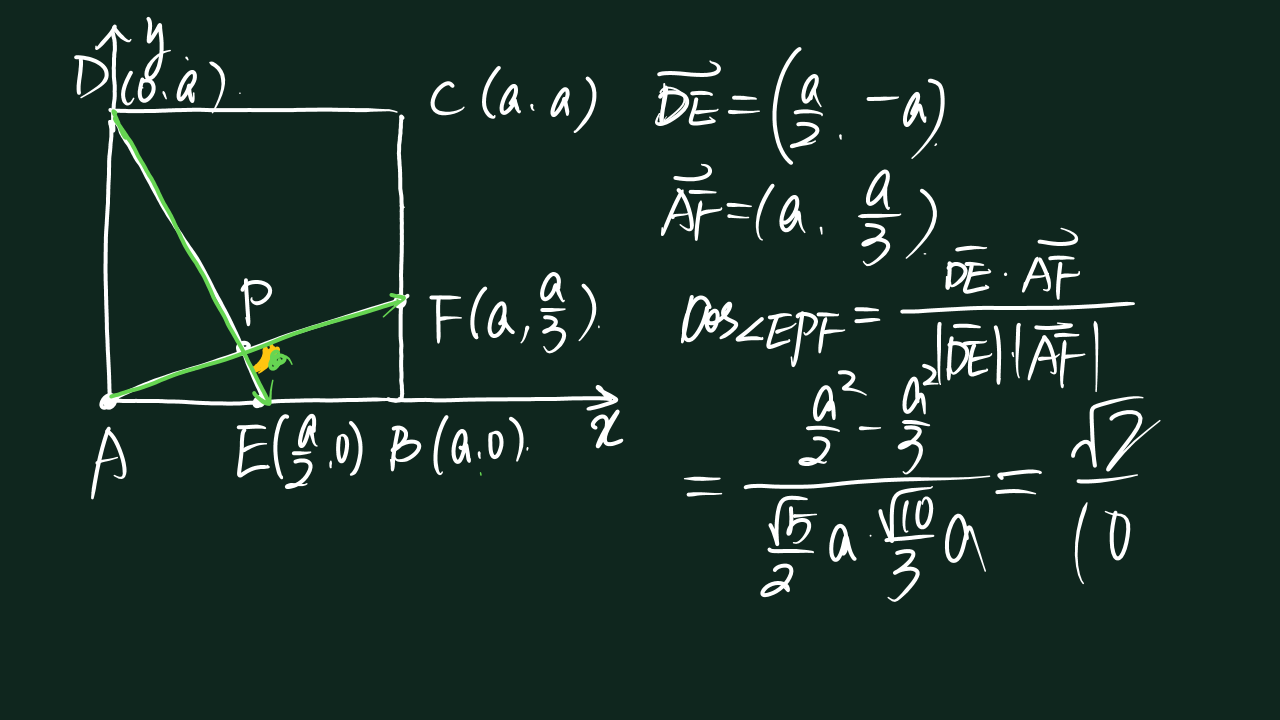 y
D (0, a)
C (a, a)
P
F (a, a/3)
x
A
E (a/2, 0)
B (a, 0)
DE⃗ = (a/2, -a)
AF⃗ = (a, a/3)
cos∠EPF = DE⃗ · AF⃗ / |DE⃗|·|AF⃗|
= (a²/2 - a²/3) / (√5/2 a · √10/3 a) = √2/10